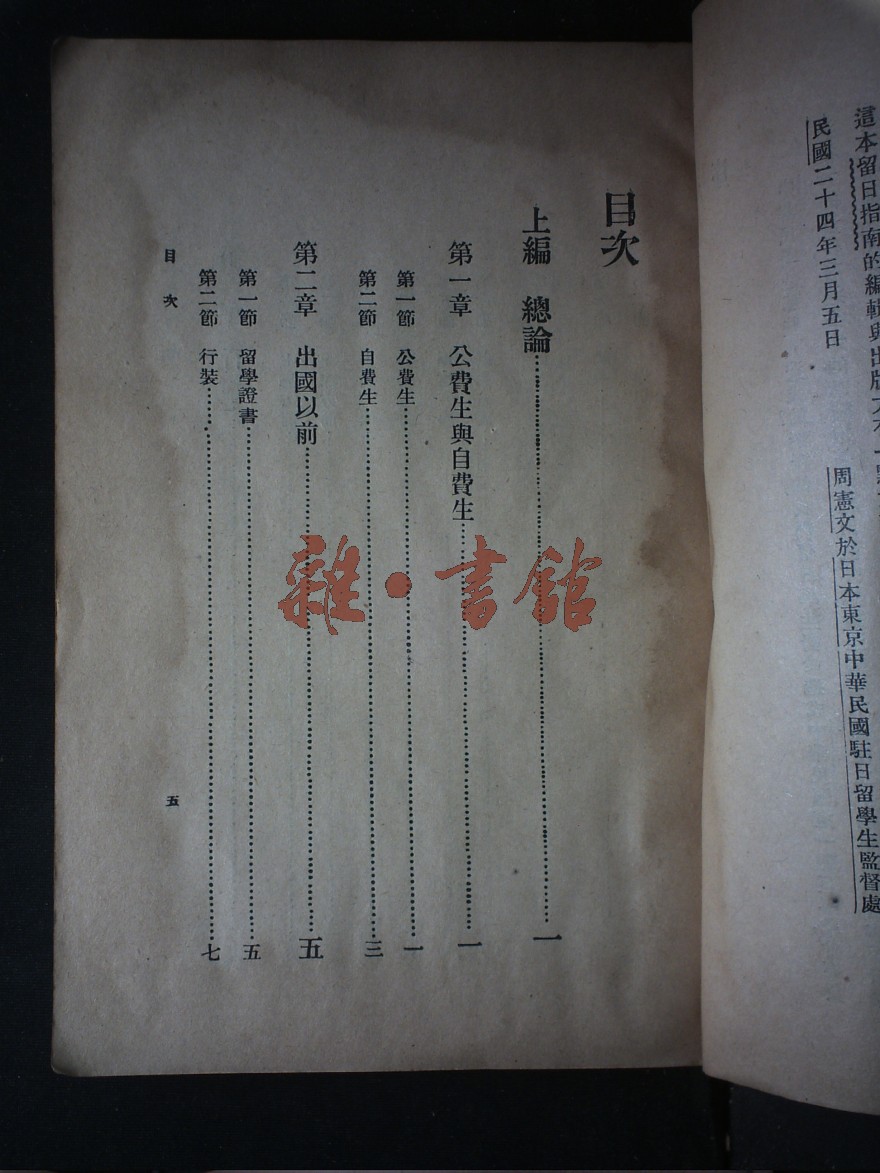 這本留日指南的編輯與出版
民國二十四年三月五日
周憲文於日本東京中華民國駐日留學生監督處
目次
上編 總論……一
第一章 公費生與自費生……一
第一節 公費生……一
第二節 自費生……三
第二章 出國以前……五
第一節 留學證書……五
第二節 行裝……七
目次
五
雜·書館